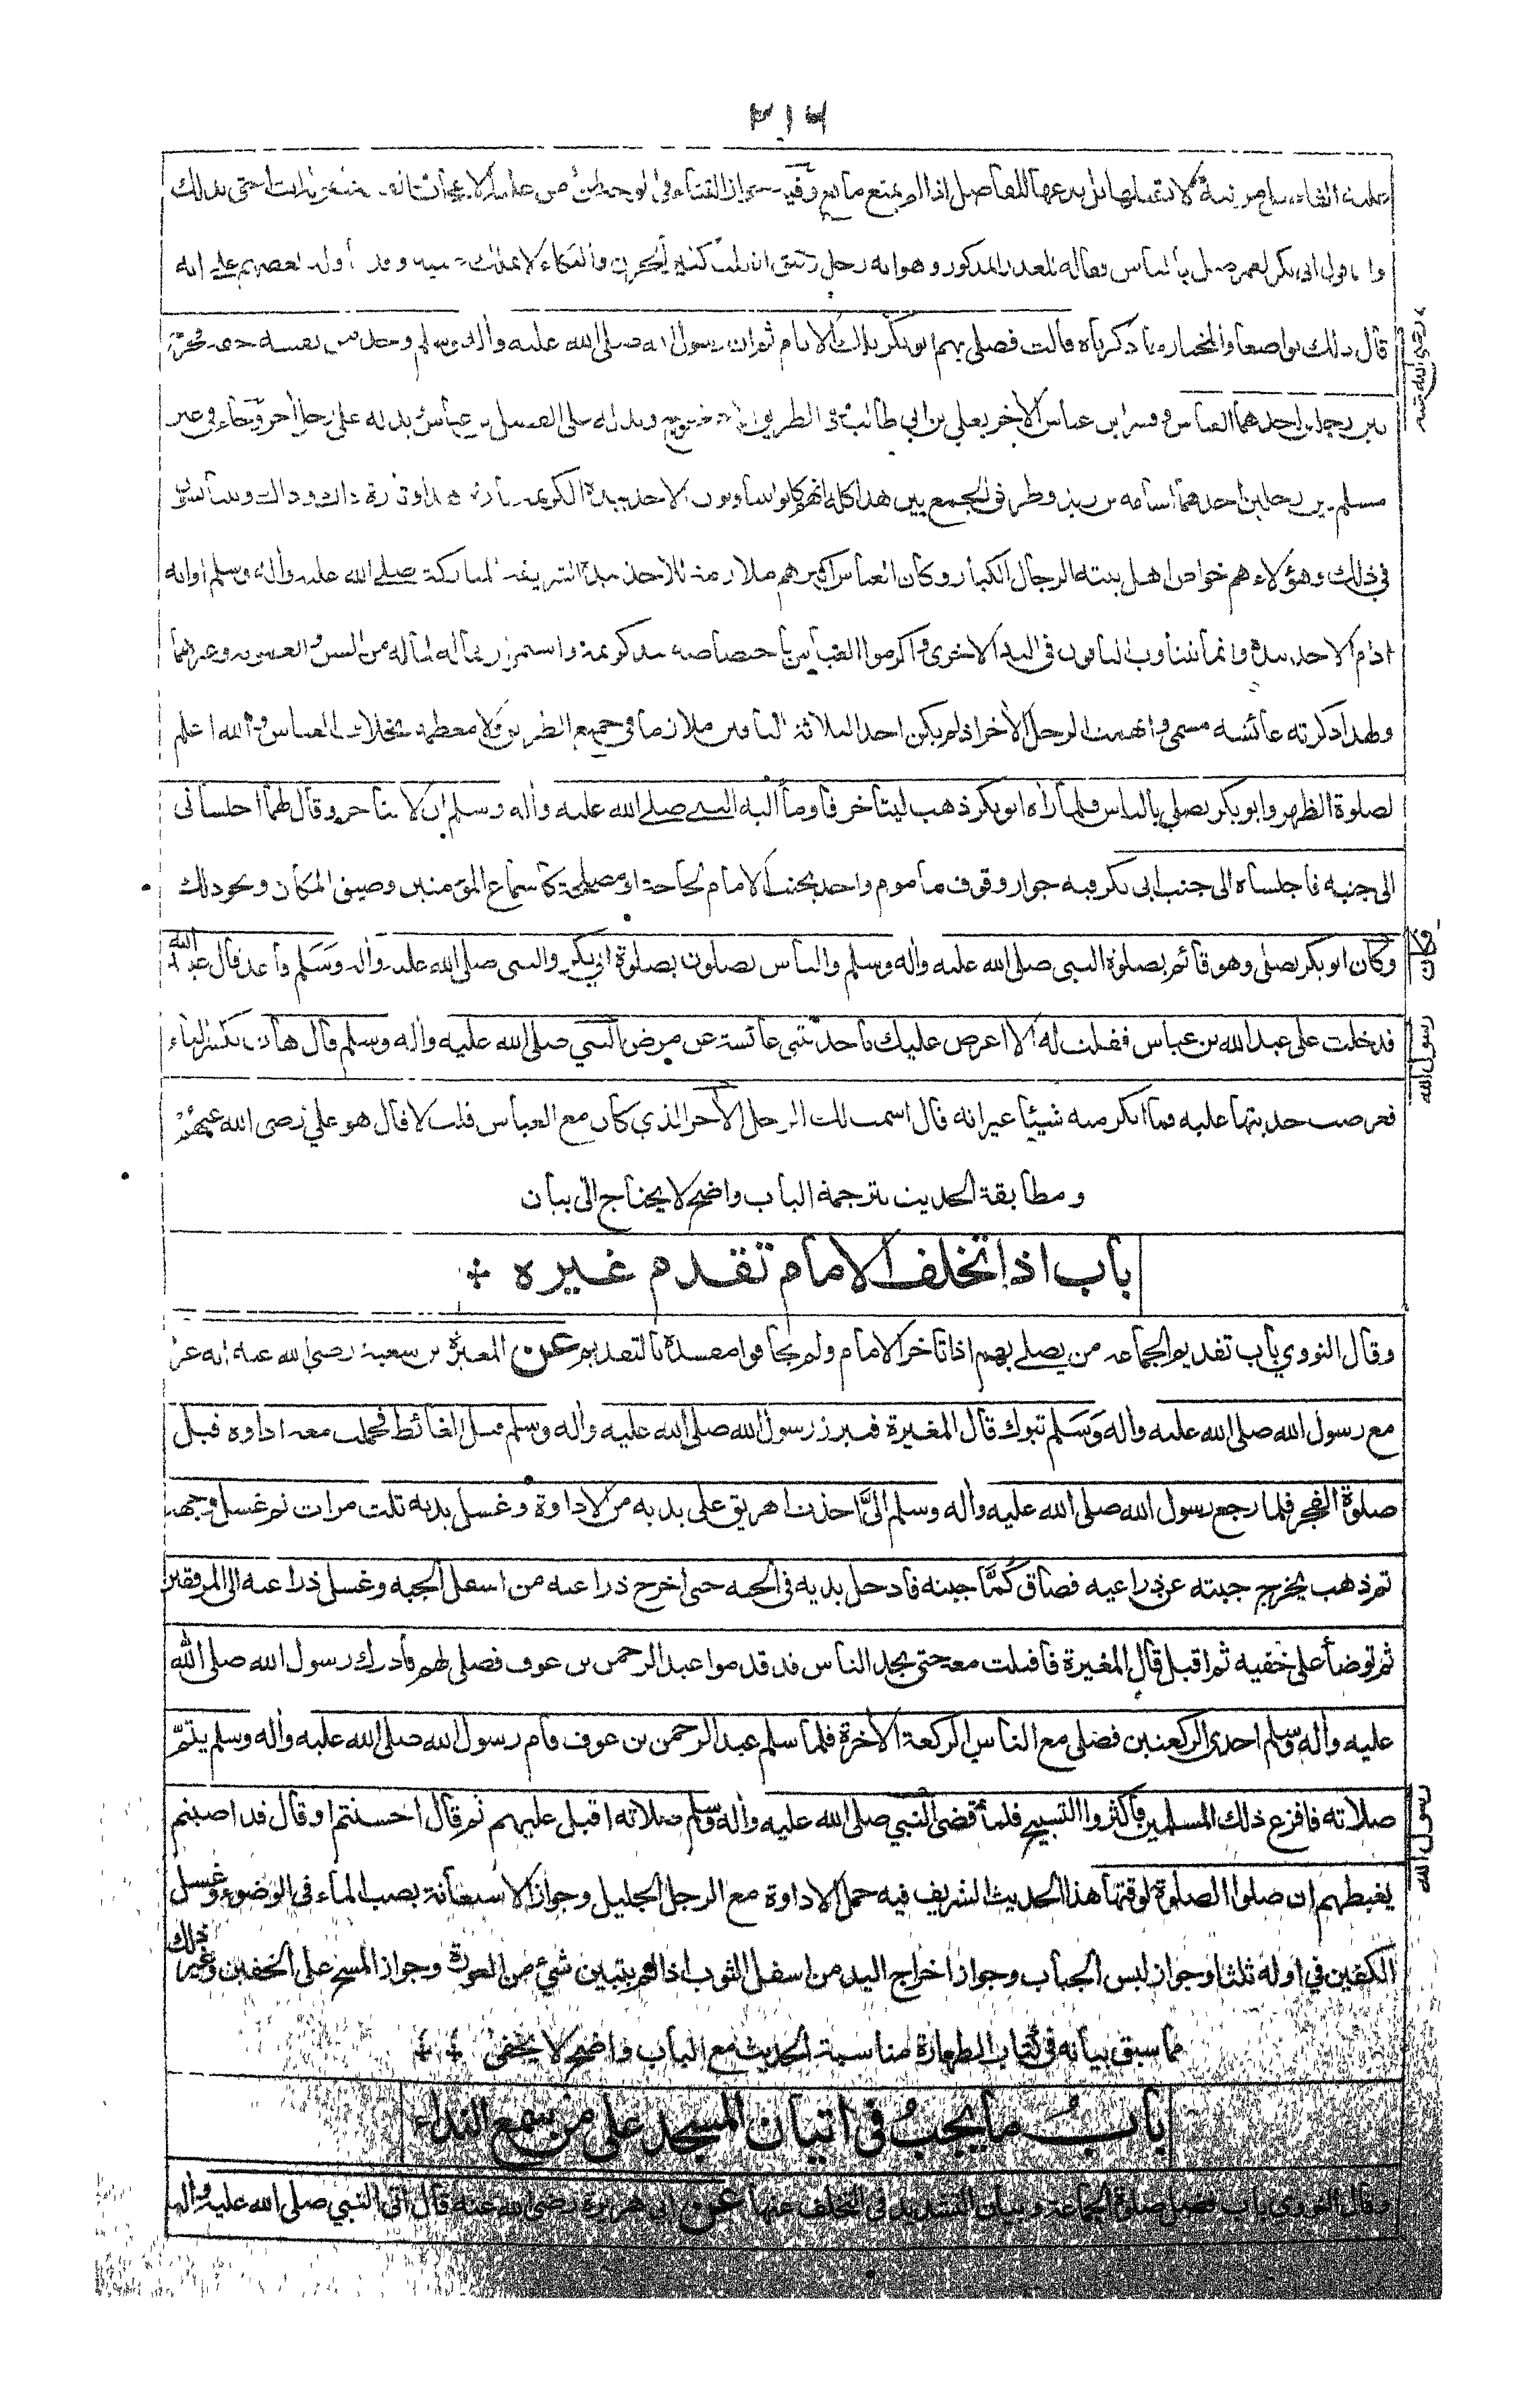 ٢١٦
فضيلة لا تقبلها بل يدعها للفاضل اذا لم يمنع مانع وفيه جواز الثناء في الوجه لمن امن عليه الاعجاب
قول ابي بكر لعمر صل بالناس فقاله للعذر المذكور وهو انه رجل رقيق القلب كثير الحزن والبكاء لا يملك عينيه وقد أوله بعضهم على انه
قال ذلك تواضعا والمختار ما ذكرناه قالت فصلى بهم ابو بكر تلك الايام ثم ان رسول الله صلى الله عليه وأله وسلم وجد من نفسه خفة فخرج
رضي الله عنه
بين رجلين احدهما العباس وفسر ابن عباس الاخر بعلي بن ابي طالب وفي الطريق ويد له على الفضل بن عباس ويد له على رجل أخر وجاء في غير
مسلم بين رجلين احدهما اسامة بن زيد وطريق الجمع بين هذا كله انهم كانوا يتناوبون الاخذ بيده الكريمة تارة هذا وتارة ذاك وذاك ويتنافسون
في ذلك وهؤلاء هم خواص اهل بيته الرجال الكبار وكان العباس اكثرهم ملازمة للاخذ بيده الشريفة المباركة صلى الله عليه وأله وسلم او انه
ادام الاخذ بيده وانما يتناوب الباقون في اليد الاخرى واكرموا العباس باختصاصه بيد كريمة واستمرارها له لما له من السن والعمومة وغيرهما
ولهذا ذكرته عائشة مسمى وابهمت الرجل الأخر اذ لم يكن احد الثلاثة الباقين ملازما في جميع الطريق ولا معظمه بخلاف العباس والله اعلم
لصلوة الظهر وابو بكر يصلي بالناس فلما رأه ابو بكر ذهب ليتأخر فأومأ اليه النبي صلى الله عليه وأله وسلم ان لا يتأخر وقال لهما اجلساني
الى جنبه فاجلساه الى جنب ابى بكر فيه جواز وقوف مأموم واحد بجنب الامام لحاجة او مصلحة كاسماع المؤمنين وضيق المكان ونحو ذلك
وكان ابو بكر يصلى وهو قائم بصلوة النبى صلى الله عليه وأله وسلم والناس يصلون بصلوة ابي بكر والنبى صلى الله عليه وأله وسلم قاعد قال عبد الله
فكان
فدخلت على عبد الله بن عباس فقلت له الا اعرض عليك ما حدثتنى عائشة عن مرض النبي صلى الله عليه وأله وسلم قال هات بكسر التاء
رسول الله
فعرضت حديثها عليه فما انكر منه شيئا غير انه قال اسمت لك الرجل الأخر الذي كان مع العباس قلت لا قال هو علي رضى الله عنهم
ومطابقة الحديث بترجمة الباب واضح لا يحتاج الى بيان
باب اذا تخلف الامام تقدم غيره
وقال النووي باب تقديم الجماعة من يصلي بهم اذا تأخر الامام ولم يخافوا مفسدة بالتقديم عن المغيرة بن شعبة رضي الله عنه انه غزا
مع رسول الله صلى الله عليه وأله وَسَلم تبوك قال المغيرة فتبرز رسول الله صلى الله عليه وأله وسلم قبل الغائط فحملت معه اداوة قبل
صلوة الفجر فلما رجع رسول الله صلى الله عليه وأله وسلم اليَّ اخذت اهريق على يديه من الاداوة وغسل يديه ثلث مرات ثم غسل وجهه
ثم ذهب يخرج جبته عن ذراعيه فضاق كُمَّا جبته فادخل يديه في الجبة حتى اخرج ذراعيه من اسفل الجبه وغسل ذراعيه الى المرفقين
ثم توضأ على خفيه ثم اقبل قال المغيرة فاقبلت معه حتى نجد الناس قد قدموا عبد الرحمن بن عوف فصلى لهم فأدرك رسول الله صلى الله
عليه وأله وسلم احدى الركعتين فصلى مع الناس الركعة الأخرة فلما سلم عبد الرحمن بن عوف قام رسول الله صلى الله عليه وأله وسلم يتمّ
صلاته فافزع ذلك المسلمين فأكثروا التسبيح فلما قضى النبي صلى الله عليه وأله وسلم صلاته اقبل عليهم ثم قال احسنتم او قال قد اصبتم
رسول الله
يغبطهم ان صلوا الصلوة لوقتها هذا الحديث الشريف فيه حمل الاداوة مع الرجل الجليل وجواز الاستعانة بصب الماء في الوضوء وغسل
الكفين في اوله ثلثا وجواز لبس الجباب وجواز اخراج اليد من اسفل الثوب اذا لم يتبين شيء من العورة وجواز المسح على الخفين وغير ذلك
مما سبق بيانه في كتاب الطهارة مناسبة الحديث مع الباب واضح لا يخفى
بابُ ما يجبُ في اتيان المسجد على من سمع النداء
وقال النووي باب فضل صلوة الجماعة وبيان التشديد في التخلف عنها عن ابي هريرة رضي الله عنه قال أتى النبي صلى الله عليه وأله